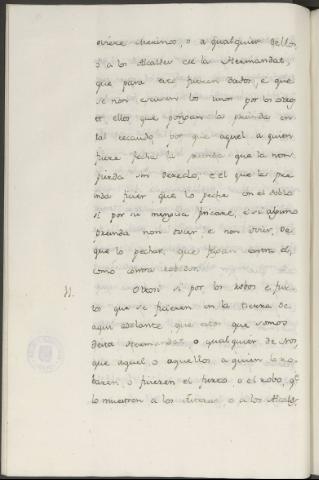 oviere cherinco, o a qualquier dellos,
ò a los Alcaldes de la Hermandat,
que para esto fueren dados, e que
se non escusen los unos por los otro
et, ellos que pongan la prenda en
tal recaudo, por que aquel a quien
fuere fecha la prenda que la non
pierda sin derecho, e el que la pre
nda ficier que lo peche con el doblo
si por su mengua fincare, e si alguno
prenda non ovier, e non ovier, de
que lo pechar, que fagan contra el,
como contra robador.
11. Otrosi si por los robos e fur
tos que se ficieren en la tierra de
aqui adelante que estos que somos
desta Hermandat, o qualquier de nos,
que aquel o aquellos a quien lo ro
baren, o ficieren el furto, o el robo, qe
lo muestren a los o a los Alcalds,